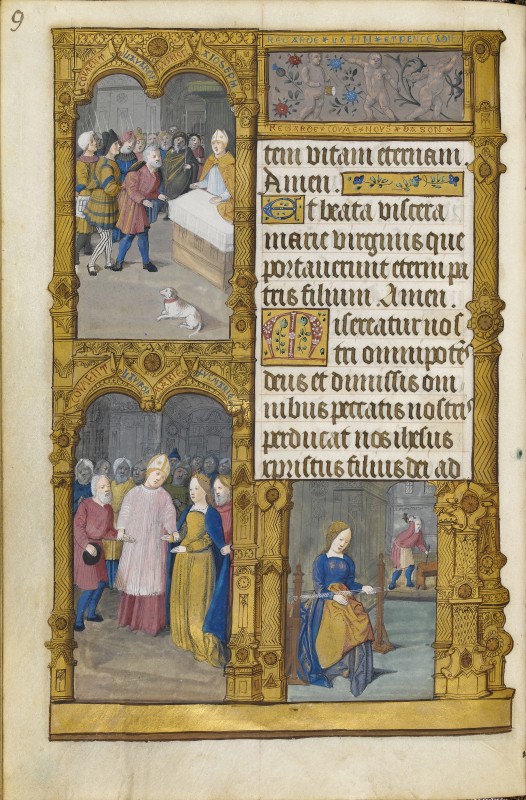 9
REGARDE LA FIN
REGARDE COVME NOVS
tem vitam eternam.
Amen.
Et beata viscera
marie virginis que
portauerunt eterni pa
tris filium Amen.
Misereatur nos
tri omnipotēs
deus et dimissis om
nibus peccatis nostris
perducat nos ihesus
xpristus filius dei ad
COMENT
COMENT